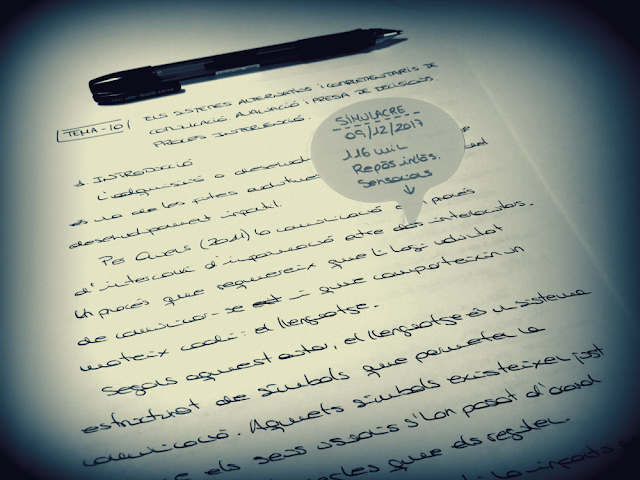 TEMA-10
ELS SISTEMES ALTERNATIUS I COMPLEMENTARIS DE
COMUNICACIÓ. AVALUACIÓ I PRESA DE DECISIONS.
PROCÉS INTERVENCIÓ.
SIMULACRE
09/12/2017
116 mil
Repàs inclòs.
Sensacions
1. INTRODUCCIÓ
L'adquisició o
és una de les fites
desenvolupament infantil.
Per (2011) la comunicació és procés
d'intercanvi d'informació entre dos interlocutors.
Un procés que requereix que hi hagi voluntat
de comunicar-se i que comparteixin un
mateix codi: el llenguatge.
Segons aquest autor, el llenguatge és un sistema
estructurat de símbols que permeten la
comunicació. Aquests símbols existeixen just
que els seus usuaris s'han posat d'acord
regles que els regulen